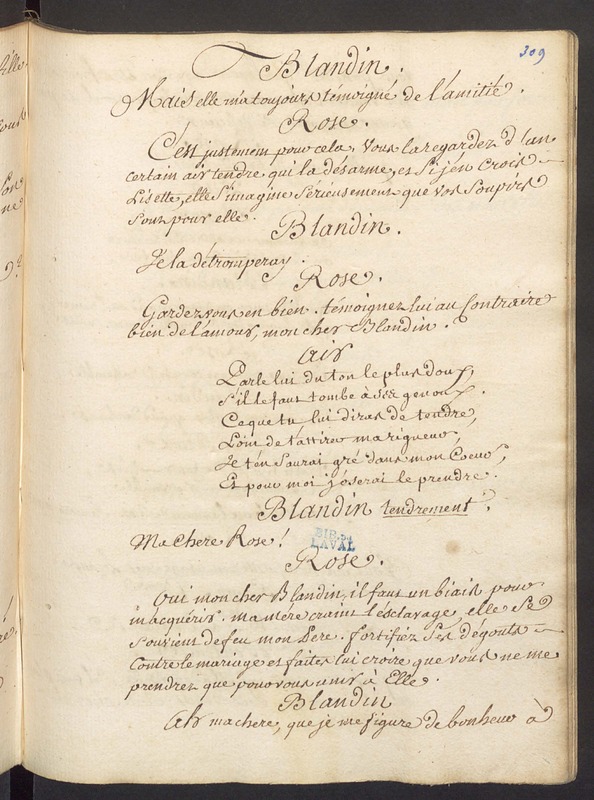 309
Blandin.
Mais elle m'a toujours témoigné de l'amitié.
Rose.
C'est justement pour cela, Vous la regardez d'un
certain air tendre qui la désarme, et si j'en crois
Lisette, elle s'imagine sérieusement que vos soupirs
sont pour elle.
Blandin.
Je la détromperay.
Rose.
Gardez vous en bien. témoignez lui au Contraire
bien de l'amour, mon cher Blandin.
Air
Parle lui du ton le plus doux,
S'il le faut tombe à ses genoux.
Ce que tu lui diras de tendre,
Loin de t'attirer ma rigueur,
Je t'en Saurai gré dans mon Coeur,
Et pour moi j'oserai le prendre.
Blandin tendrement.
Ma Chere Rose!
BIB. DE
LAVAL
Rose.
Oui mon cher Blandin, il faut un biais pour
m'acquerir. ma mère craint l'esclavage, elle se
souvient de feu mon Pere. fortifiez Ses dégouts
Contre le mariage et faites lui croire que vous ne me
prendrez que pour vous unir à Elle.
Blandin
Ah machere, que je me figure de bonheur à